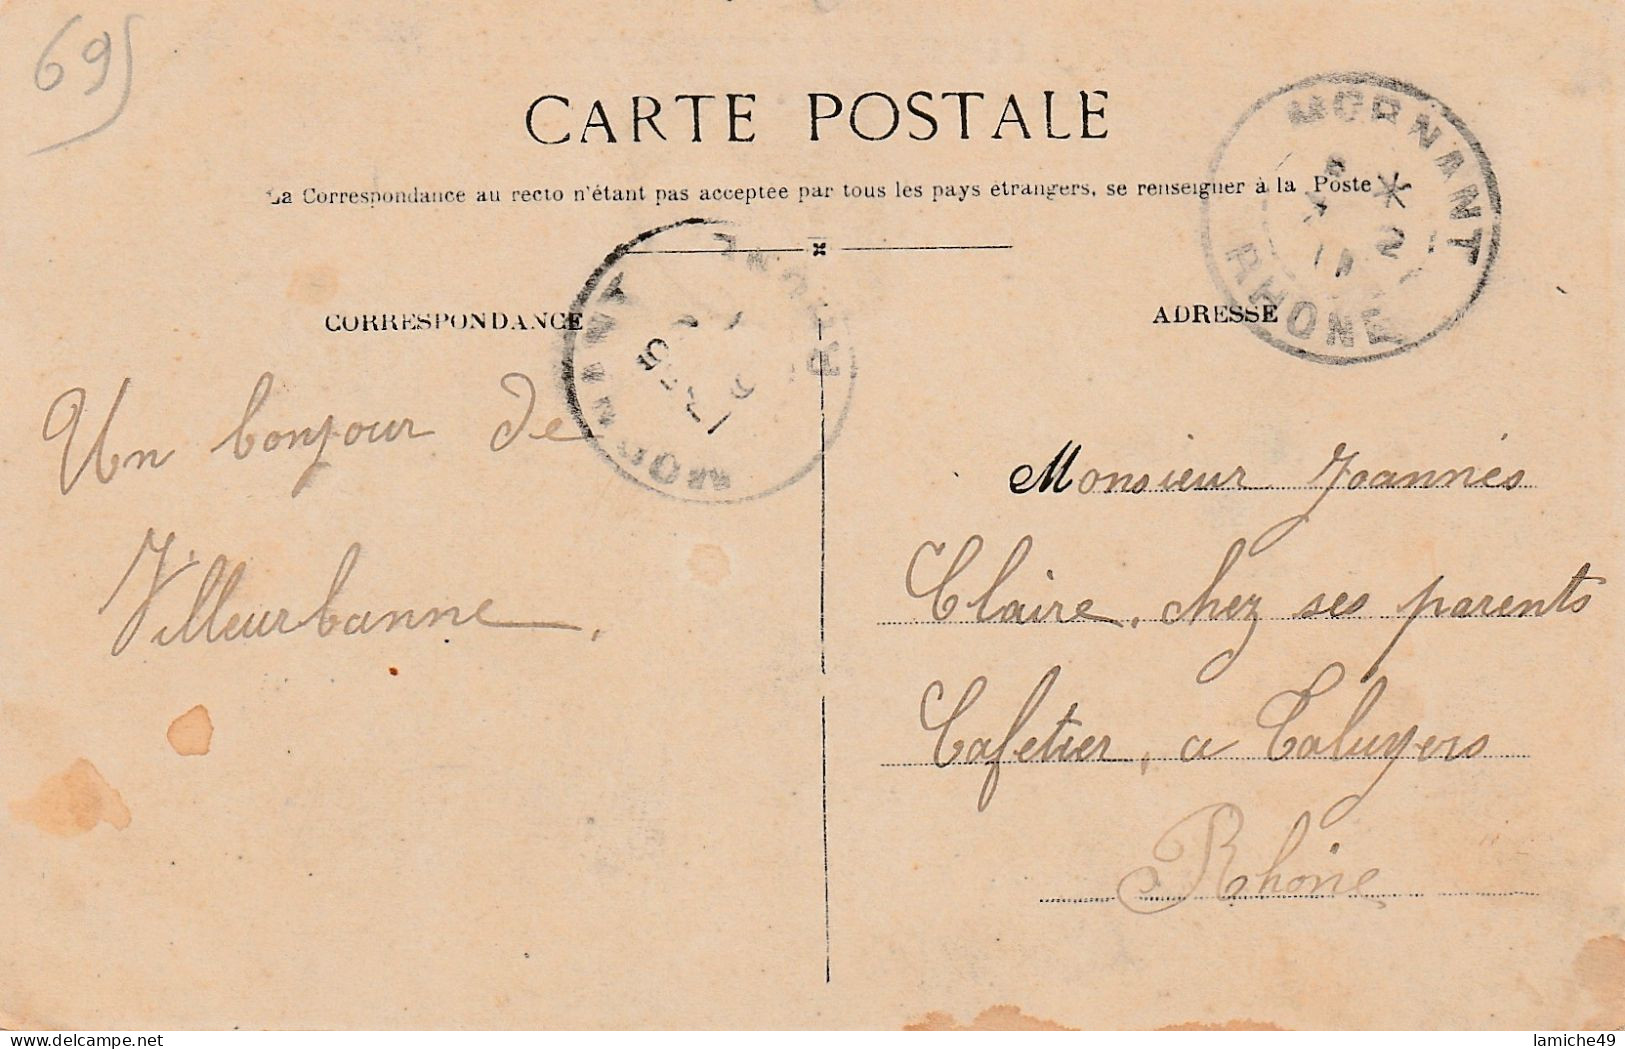 69
CARTE POSTALE
La Correspondance au recto n'étant pas acceptée par tous les pays étrangers, se renseigner à la Poste
MORNANT
RHONE
MORNANT
RHONE
CORRESPONDANCE
Un bonjour de
Villeurbanne.
ADRESSE
Monsieur Joannès
Claire, chez ses parents
Cafetier, a Taluyers
Rhône
lamiche49